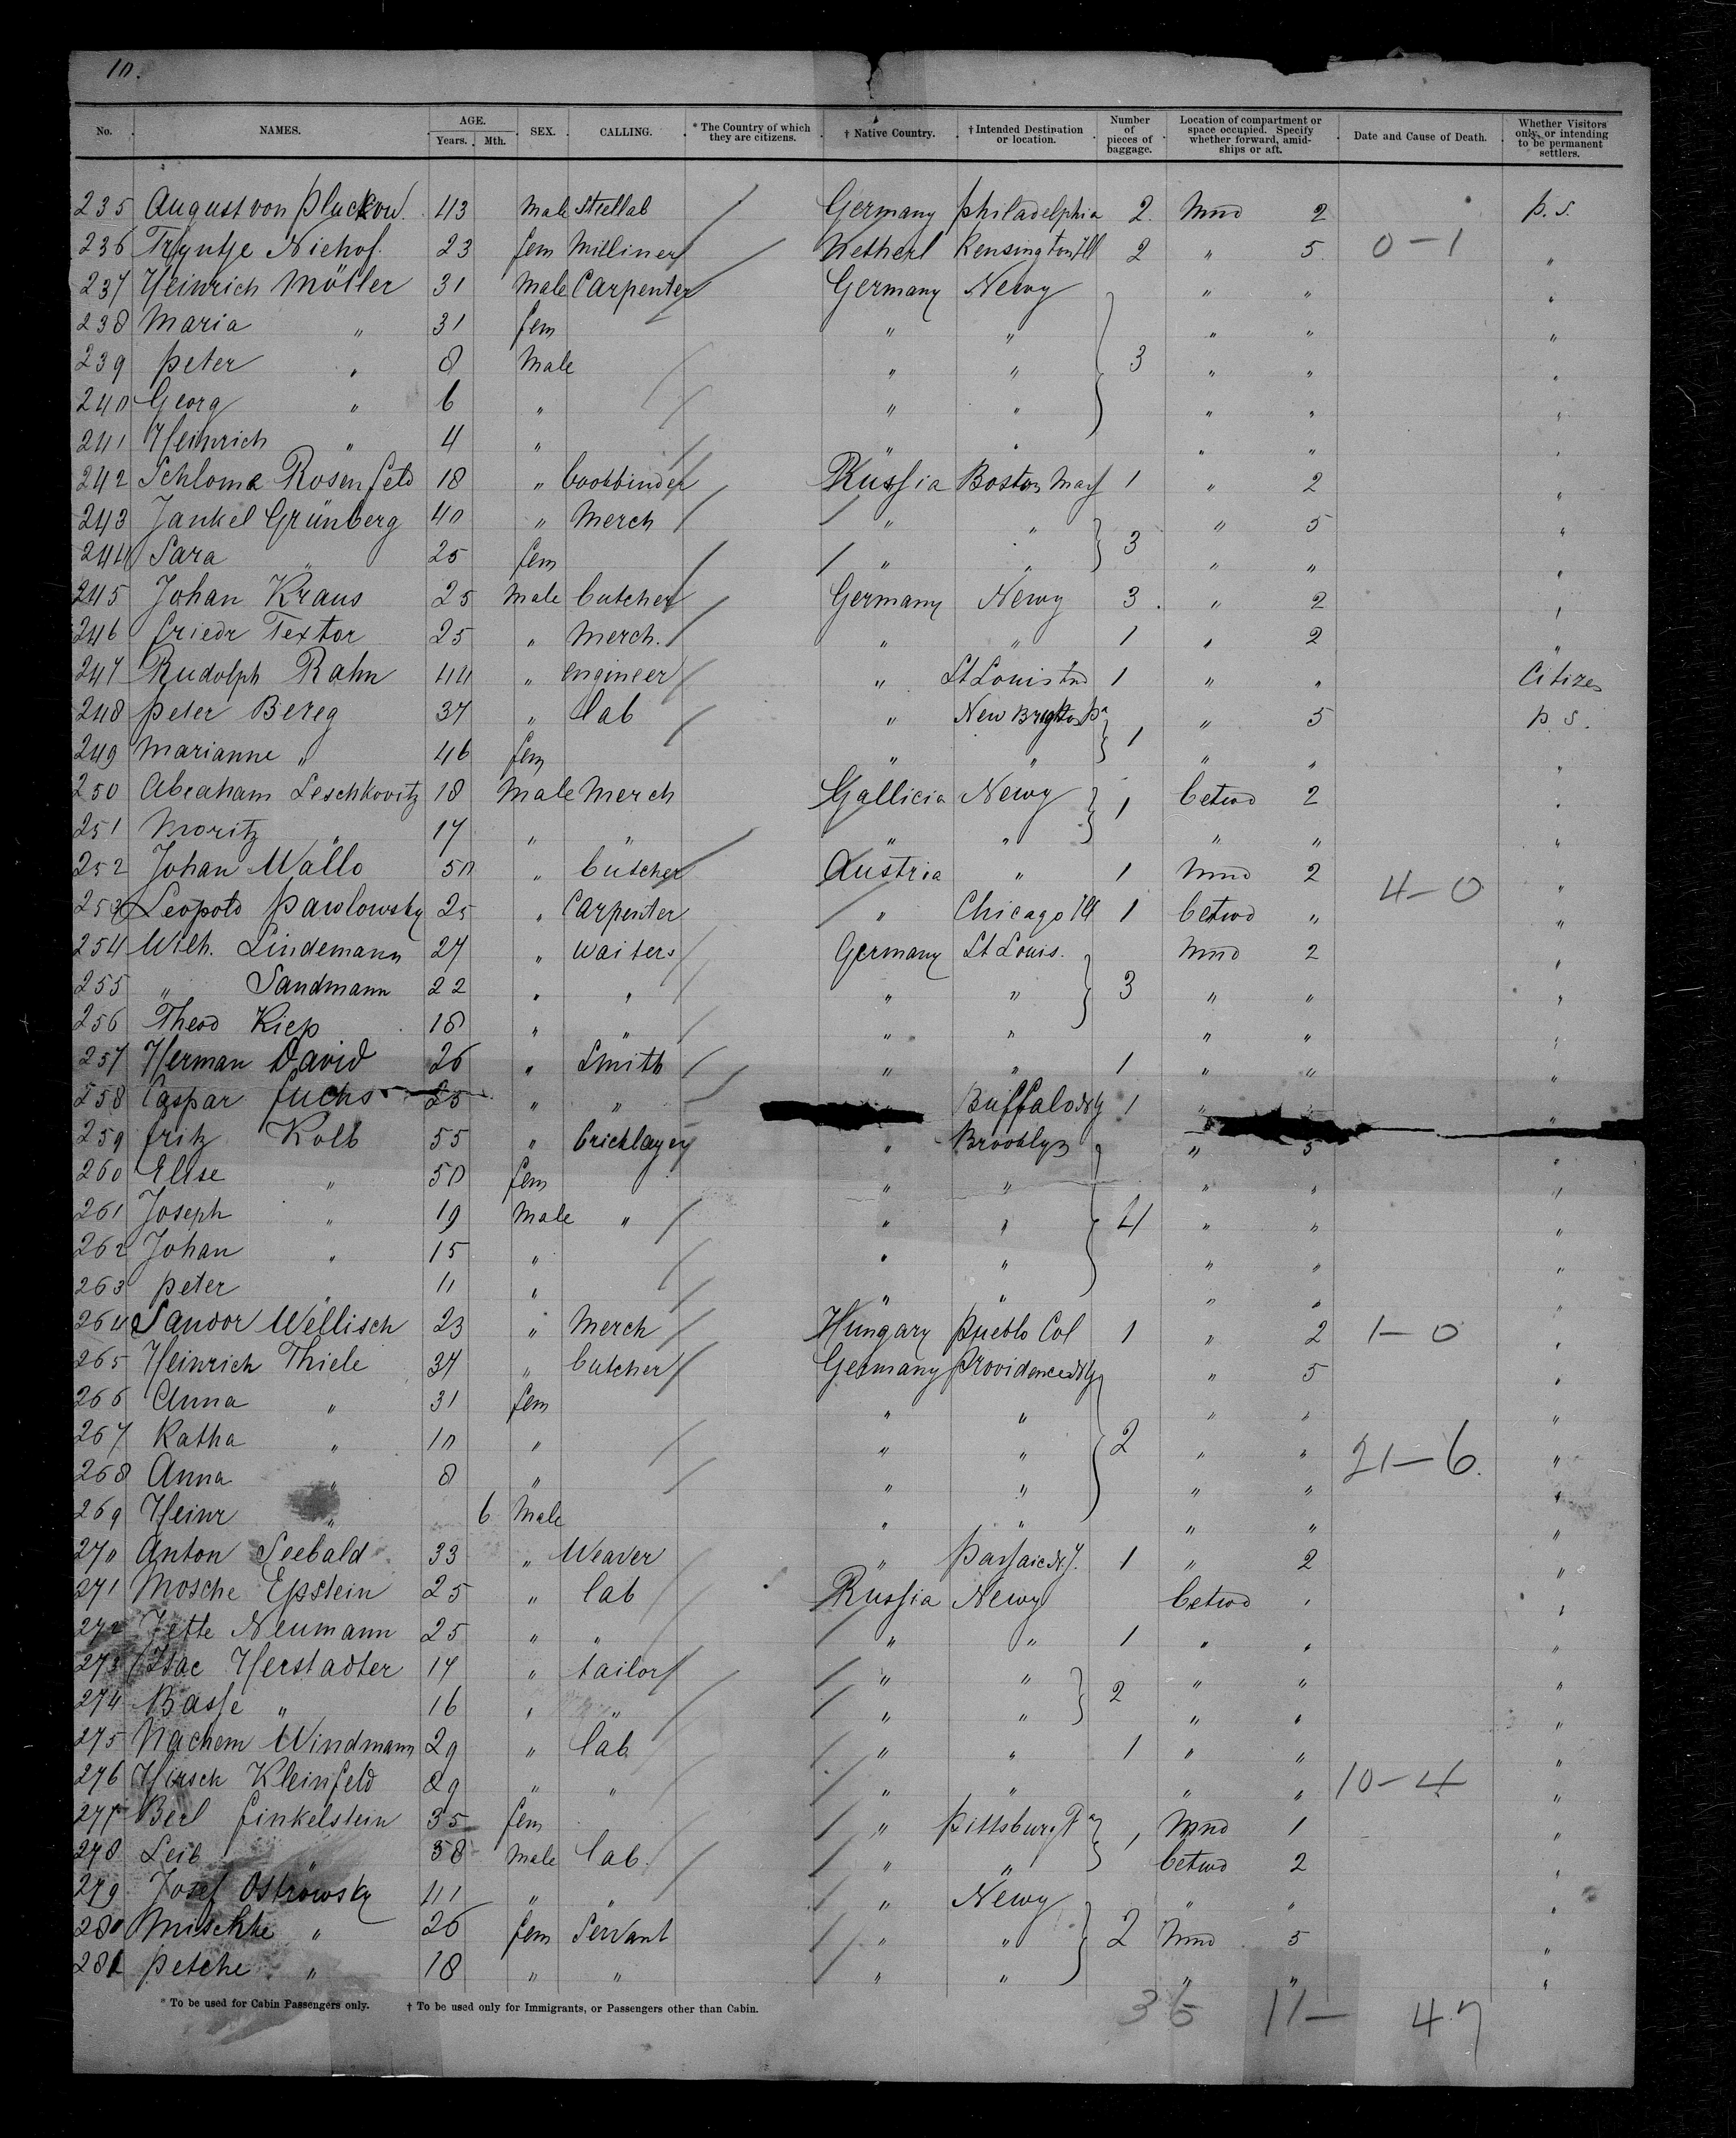 10.
No. NAMES. AGE. Years. Mth. SEX. CALLING. * The Country of which they are citizens. † Native Country. † Intended Destination or location. Number of pieces of baggage. Location of compartment or space occupied. Specify whether forward, amidships or aft. Date and Cause of Death. Whether Visitors only, or intending to be permanent settlers.
235 August von Pluckow 43 Male Germany Philadelphia 2 Mnd 2 p. s.
236 Tryntje Niehof. 23 fem Milliner Netherl Kensington Ill 2 " 5 0-1 "
237 Heinrich Möller 31 Male Carpenter Germany Newy " " "
238 Maria " 31 fem " " " " "
239 Peter " 8 Male " " 3 " " "
240 Georg " 6 " " " " " "
241 Heinrich " 4 " " " " " "
242 Schloma Rosenfeld 18 " bookbinder Russia Boston Mass 1 " 2 "
243 Jankel Grünberg 40 " Merch " " " 5 "
244 Sara " 25 fem " " 3 " " "
245 Johan Kraus 25 Male butcher Germany Newy 3 " 2 "
246 Friedr Textor 25 " Merch. " " 1 " 2 "
247 Rudolph Rahn 44 " engineer " St Louis 1 " " Citizen
248 Peter Bereg 37 " lab " New Brighton Pa " 5 p s.
249 Marianne " 46 fem " " 1 " " "
250 Abraham Leschkovitz 18 Male Merch Gallicia Newy 1 betwd 2 "
251 Moritz " 17 " " " " " " "
252 Johan Wallo 50 " butcher Austria " 1 Mnd 2 "
4-0
253 Leopold Pawlowsky 25 " Carpenter " Chicago Ill 1 betwd " "
254 Wilh. Lindemann 27 " waiters Germany St Louis. Mnd 2 "
255 " Sandmann 22 " " " " 3 " " "
256 Theod Kiep 18 " " " " " " "
257 Herman David 26 " Smith " " 1 " " "
258 Caspar Fuchs 25 " " Buffalo NY 1 " "
259 Fritz Kolb 55 " bricklayer " Brooklyn " 5 "
260 Elise " 50 fem " " " " "
261 Joseph " 19 Male " " " 4 " " "
262 Johan " 15 " " " " " "
263 Peter " 11 " " " " " "
264 Sandor Wellisch 23 " Merch Hungary Pueblo Col 1 " 2 1-0 "
265 Heinrich Thiele 37 " butcher Germany Providence NY " 5 "
266 Anna " 31 fem " " " " "
267 Katha " 10 " " " 2 " " 21-6. "
268 Anna " 8 " " " " " "
269 Heinr " 6 Male " " " " "
270 Anton Seebald 33 " Weaver " Passaic NJ. 1 " 2 "
271 Mosche Epstein 25 " lab Russia Newy betwd " "
272 Jette Neumann 25 " " " " 1 " " "
273 Isac Herstadter 17 " tailor " " " " "
274 Basse " 16 " " " " 2 " " "
275 Nachem Windmann 29 " lab " " 1 " " "
276 Hirsch Kleinfeld 29 " " " " " " 10-4 "
277 Berl Finkelstein 35 fem " Pittsburg Pa 1 Mnd 1 "
278 Leib " 38 Male lab. " " betwd 2 "
279 Josef Ostrowsky 41 " " " Newy " " "
280 Mischke " 26 fem Servant " " 2 Mnd 5 "
281 Petche " 18 " " " " " " "
* To be used for Cabin Passengers only. † To be used only for Immigrants, or Passengers other than Cabin.
36 11- 47